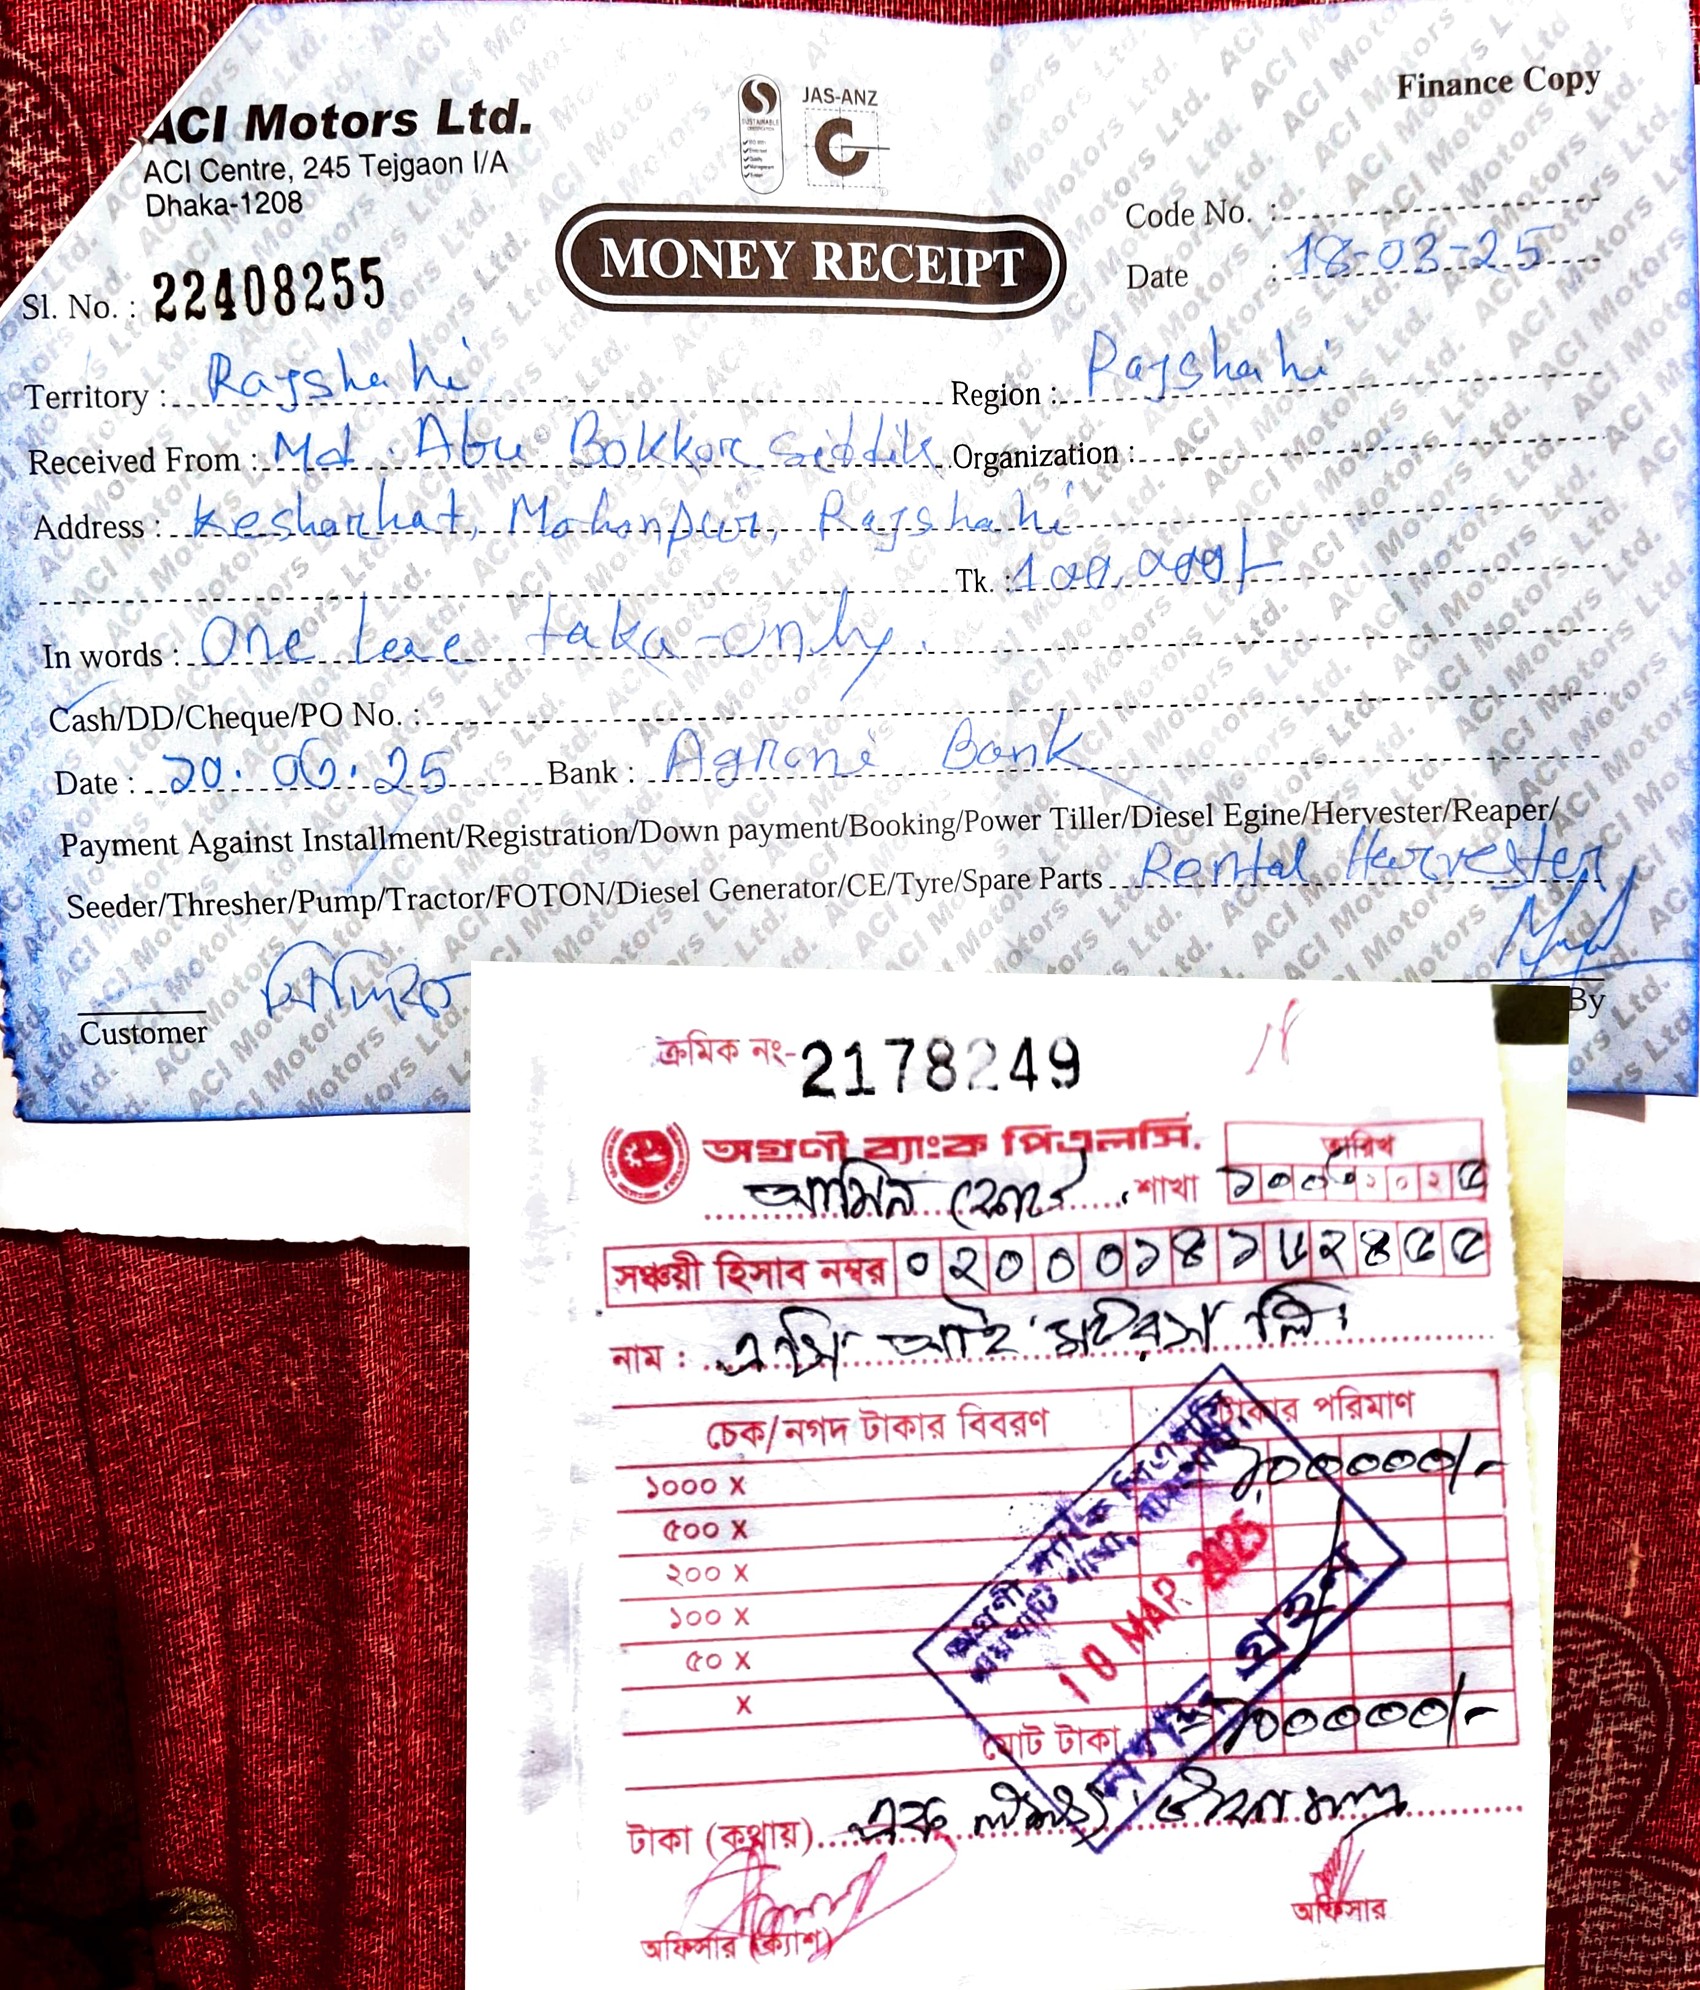 Finance Copy
ACI Motors Ltd.
ACI Centre, 245 Tejgaon I/A
Dhaka-1208
JAS-ANZ
MONEY RECEIPT
Code No. :
Date : 18-03-25
Sl. No. : 22408255
Territory : Rajshahi Region : Rajshahi
Received From : Md. Abu Bokkor Siddik Organization :
Address : Kesharhat, Mohonpur, Rajshahi
Tk. : 100,000/-
In words : One taka only.
Cash/DD/Cheque/PO No. :
Date : Bank : Agrani Bank
Payment Against Installment/Registration/Down payment/Booking/Power Tiller/Diesel Egine/Hervester/Reaper/
Seeder/Thresher/Pump/Tractor/FOTON/Diesel Generator/CE/Tyre/Spare Parts Rental Harvester
Customer
By
ক্রমিক নং- 2178249
অগ্রণী ব্যাংক পিএলসি.
তারিখ
শাখা
সঞ্চয়ী হিসাব নম্বর ০২০০০১৪১৬২৪৫৫
নাম : এসি আই মটরস লিঃ
চেক/নগদ টাকার বিবরণ টাকার পরিমাণ
১০০০ X ১০০০০০/-
৫০০ X
২০০ X
১০০ X
৫০ X
X
10 MAR 2025
নগদ গ্রহণ
মোট টাকা = ১০০০০০/-
টাকা (কথায়) এক লক্ষ টাকা মাত্র
অফিসার (ক্যাশ)
অফিসার